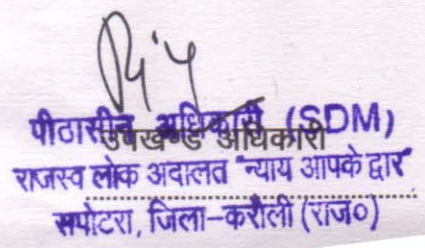 पीठासीन अधिकारी (SDM)
उपखण्ड अधिकारी
राजस्व लोक अदालत "न्याय आपके द्वार"
सपोटरा, जिला-करौली (राज०)